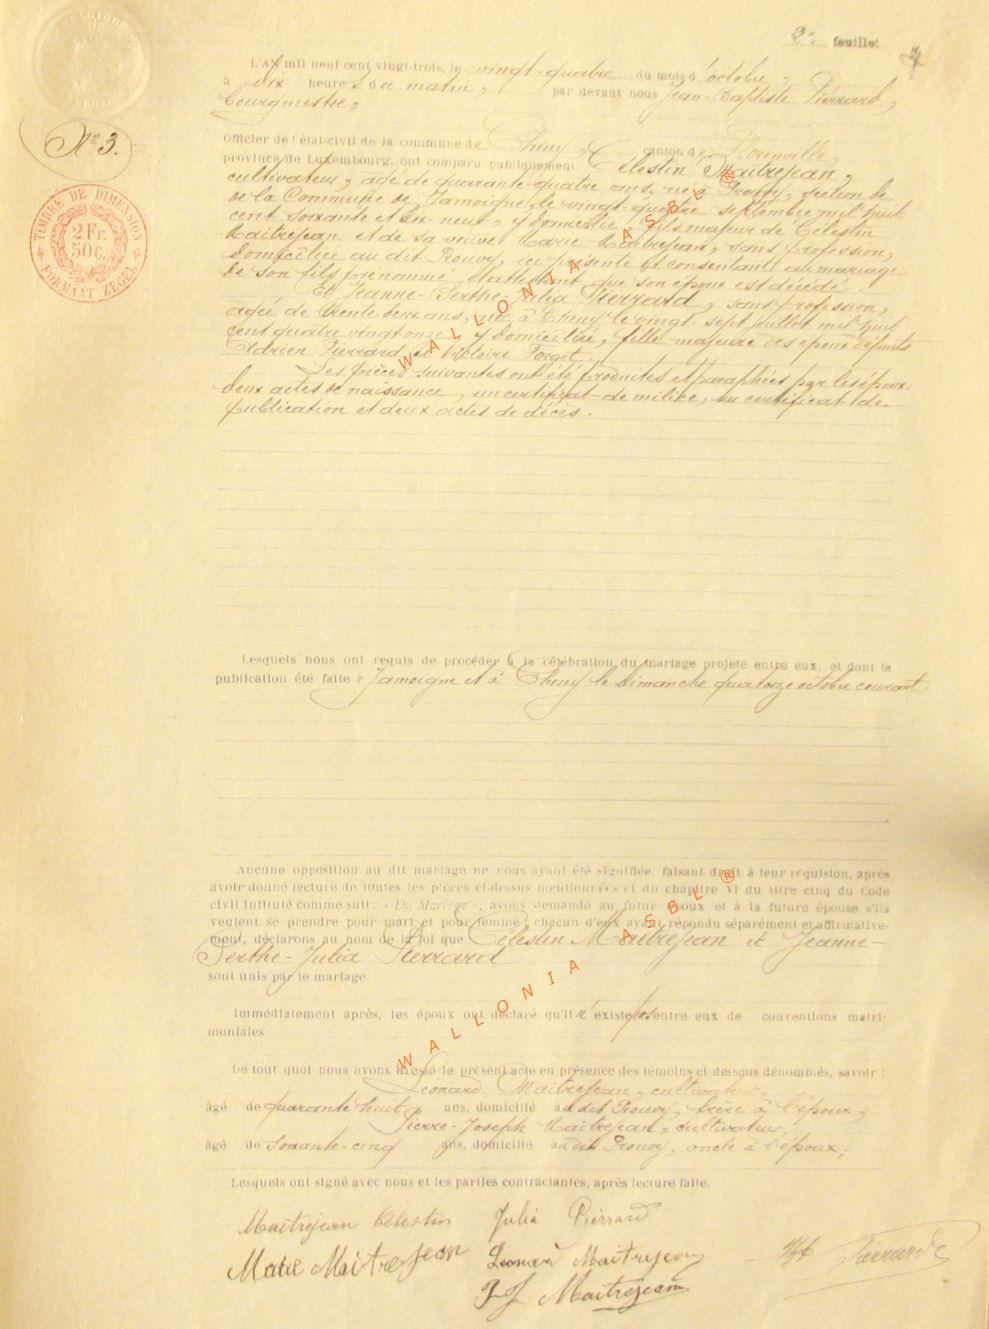 2e feuillet
L'AN mil neuf cent vingt-trois, le vingt-quatre du mois d'octobre,
à dix heures du matin, par devant nous Jean-Baptiste Pierrard,
bourgmestre,
N° 3.
Officier de l'état-civil de la commune de Chiny, canton de Florenville,
province de Luxembourg, ont comparu publiquement Célestin Maitrejean,
cultivateur, âgé de quarante-quatre ans, né à Prouvy, section de
de la Commune de Jamoigne, le vingt-quatre septembre mil huit
cent soixante et dix-neuf, y domicilié, fils majeur de Célestin
Maitrejean et de sa veuve Marie Maitrejean, sans profession,
domiciliée au dit Prouvy, ici présente et consentante au mariage
de son fils prénommé, et attestant que son époux est décédé.
Et Jeanne-Berthe-Julia Pierrard, sans profession,
âgée de trente-deux ans, née à Chiny le vingt-sept juillet mil huit
cent quatre vingt onze, y domiciliée, fille majeure des époux défunts
Adrien Pierrard et Victoire Forget.
Les pièces suivantes ont été produites et paraphées par les époux:
deux actes de naissance, un certificat de milice, un certificat de
publication et deux actes de décès.
TIMBRE DE DIMENSION
2 Fr.
50c.
FORMAAT ZEGEL
Lesquels nous ont requis de procéder à la célébration du mariage projeté entre eux, et dont la
publication été faite à Jamoigne et à Chiny le dimanche quatorze octobre courant.
Aucune opposition au dit mariage ne nous ayant été signifiée, faisant droit à leur réquision, après
avoir donné lecture de toutes les pièces ci-dessus mentionnées et du chapitre VI du titre cinq du Code
civil intitulé comme suit: « Du Mariage », avons demandé au futur époux et à la future épouse s'ils
veulent se prendre pour mari et pour femme; chacun d'eux ayant répondu séparément et affirmative-
ment, déclarons au nom de la loi que Célestin Maitrejean et Jeanne-
Berthe-Julia Pierrard
sont unis par le mariage.
Immédiatement après, les époux ont déclaré qu'il n'existe pas entre eux de conventions matri-
moniales
De tout quoi nous avons dressé le présent acte en présence des témoins ci dessous dénommés, savoir:
Léonard Maitrejean, cultivateur,
âgé de quarante huit ans, domicilié au dit Prouvy, frère à l'époux,
Pierre-Joseph Maitrejean, cultivateur,
âgé de soixante-cinq ans, domicilié au dit Prouvy, oncle à l'époux;
Lesquels ont signé avec nous et les parties contractantes, après lecture faite.
Maitrejean Célestin Julia Pierrard
Marie Maitrejean Léonard Maitrejean Pierrard
P J Maitrejean
WALLONIA ASBL ®
WALLONIA ASBL ®